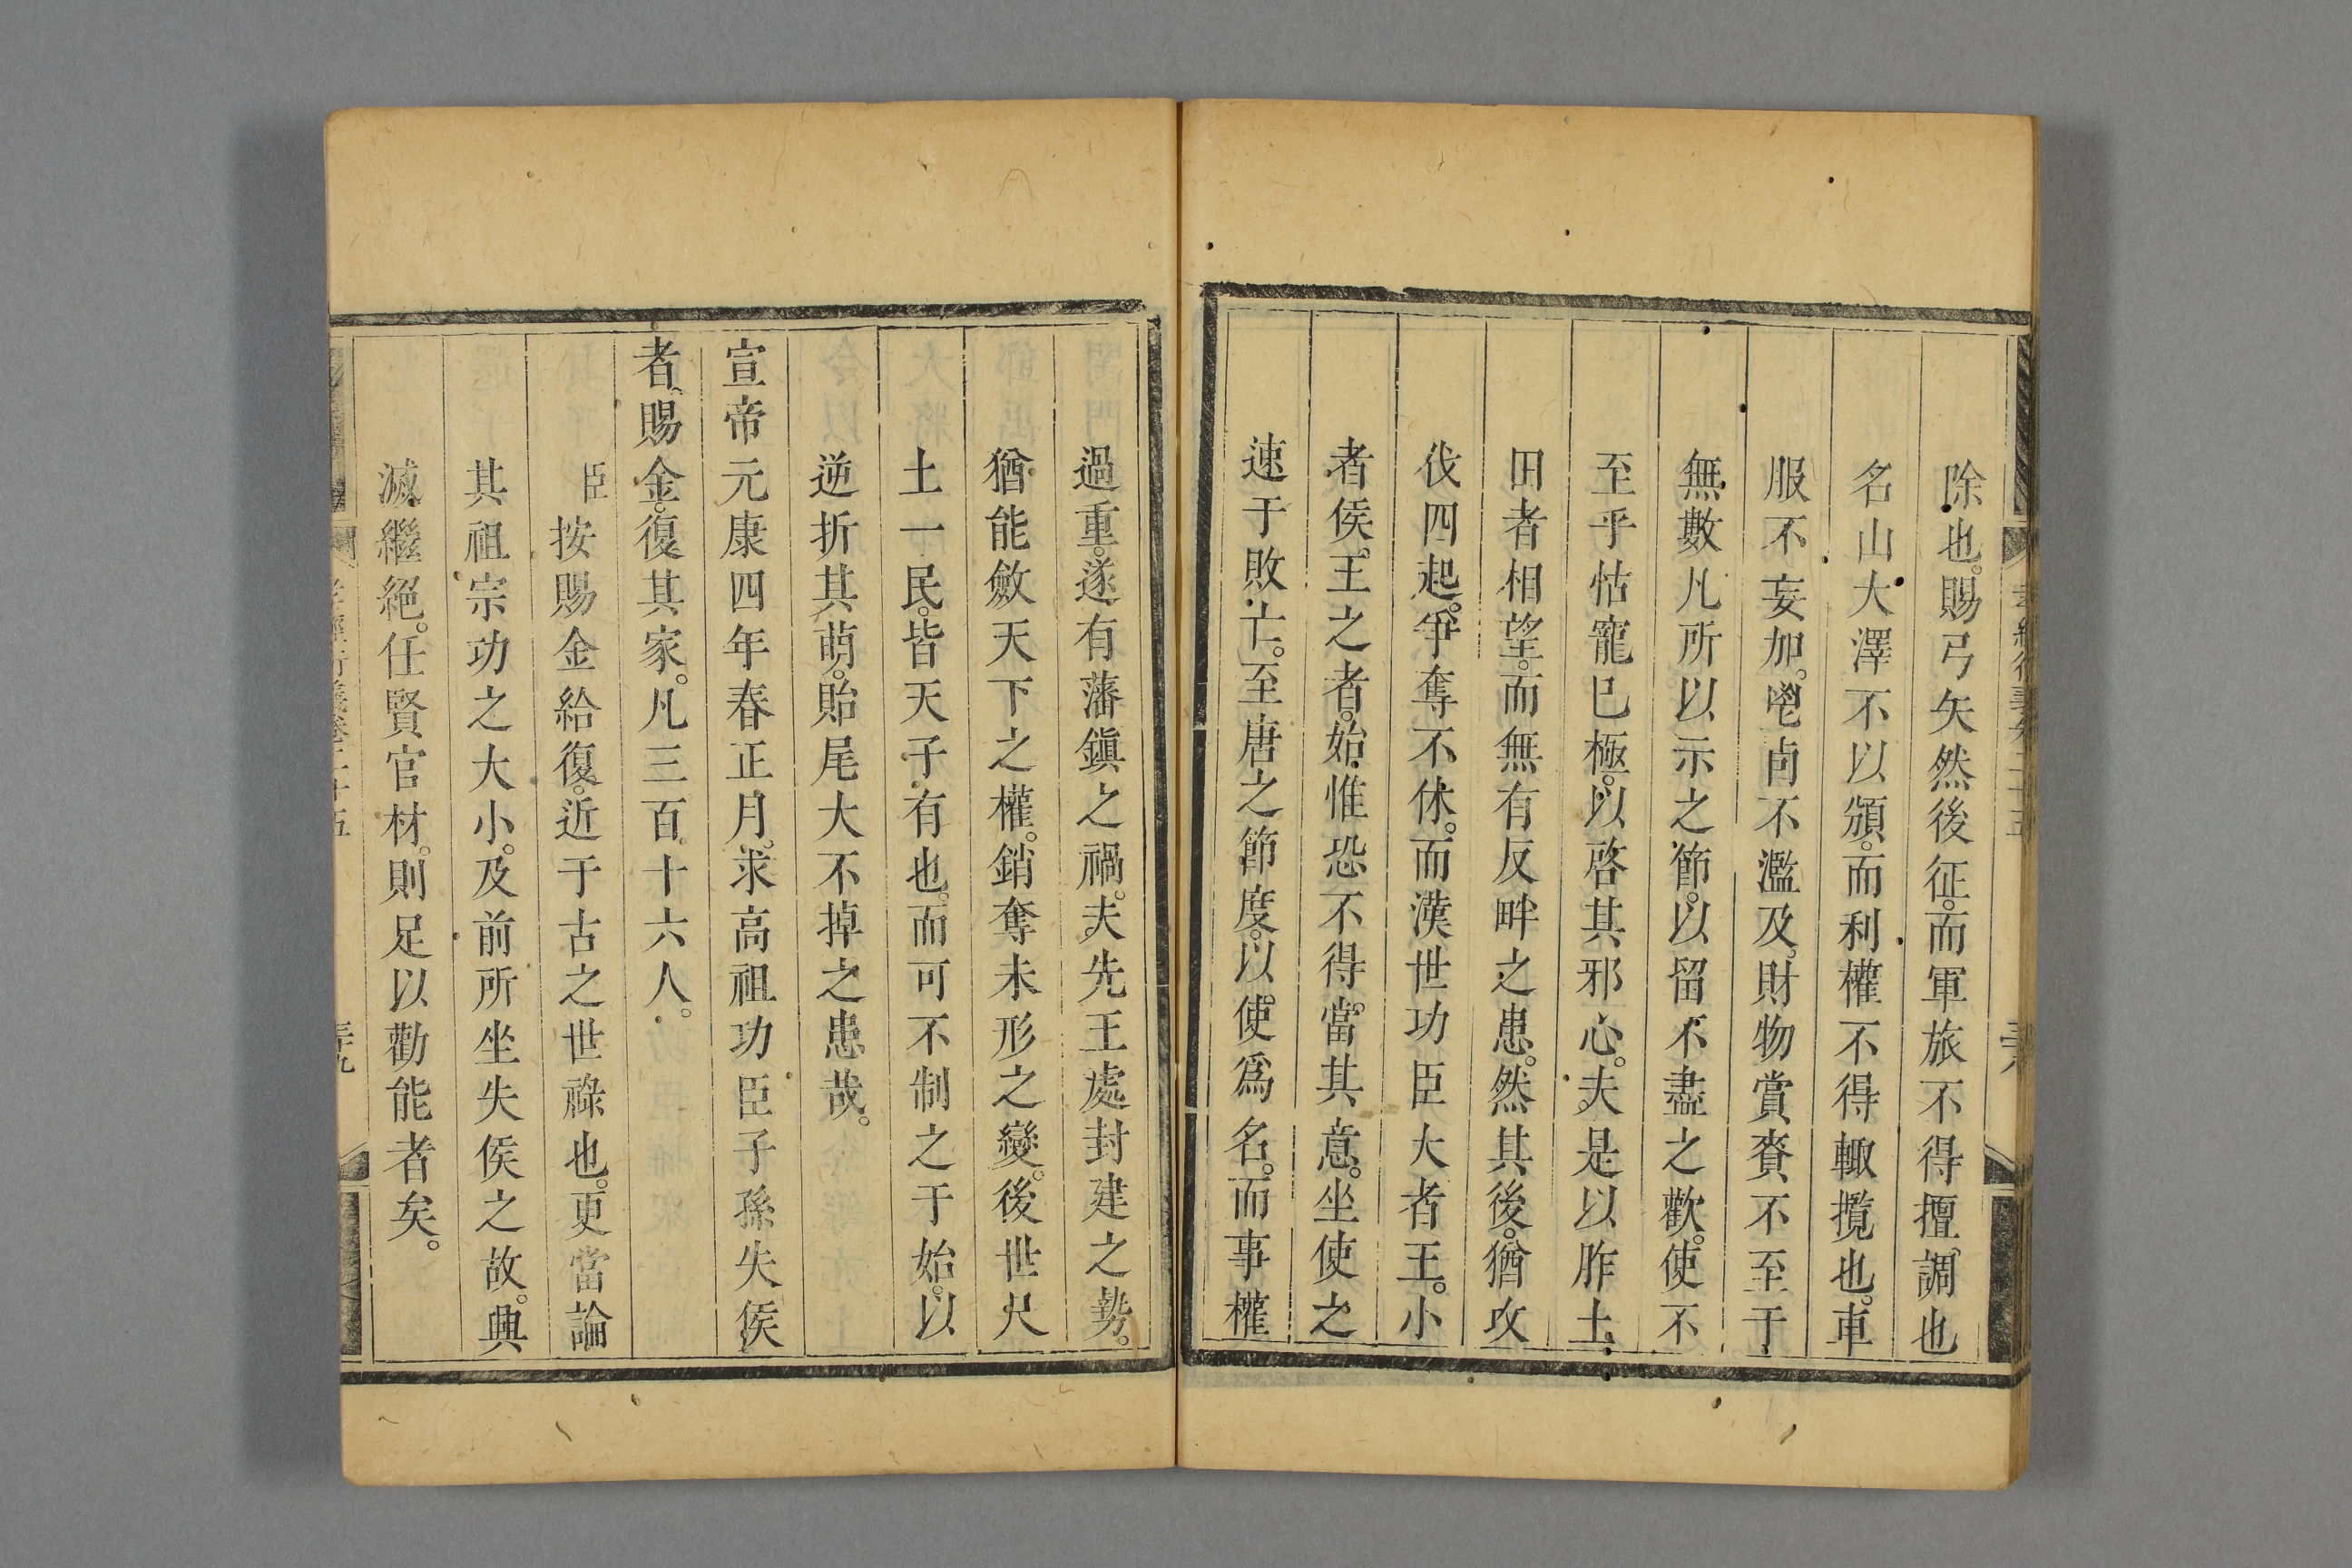 除也。賜弓矢然後征。而軍旅不得擅調也
名山大澤不以頒。而利權不得輙攬也。車
服不妄加。鬯卣不濫及。財物賞賚不至于
無數凡所以示之節。以留不盡之歡。使不
至乎怙寵已極。以啓其邪心。夫是以胙土
田者相望。而無有反畔之患。然其後。猶攻
伐四起。爭奪不休。而漢世功臣大者王。小
者侯。王之者。始惟恐不得。當其意。坐使之
速于敗亡。至唐之節度。以使爲名。而事權
過重。遂有藩鎭之禍。夫先王處封建之勢。
猶能斂天下之權。銷奪未形之變。後世尺
土一民。皆天子有也。而可不制之于始。以
逆折其萌。貽尾大不掉之患哉。
宣帝元康四年春正月。求高祖功臣子孫失侯
者。賜金。復其家。凡三百十六人。
臣按賜金給復。近于古之世祿也。更當論
其祖宗功之大小。及前所坐失侯之故。興
滅繼絕。任賢官材。則足以勸能者矣。
孝經衍義卷二十五